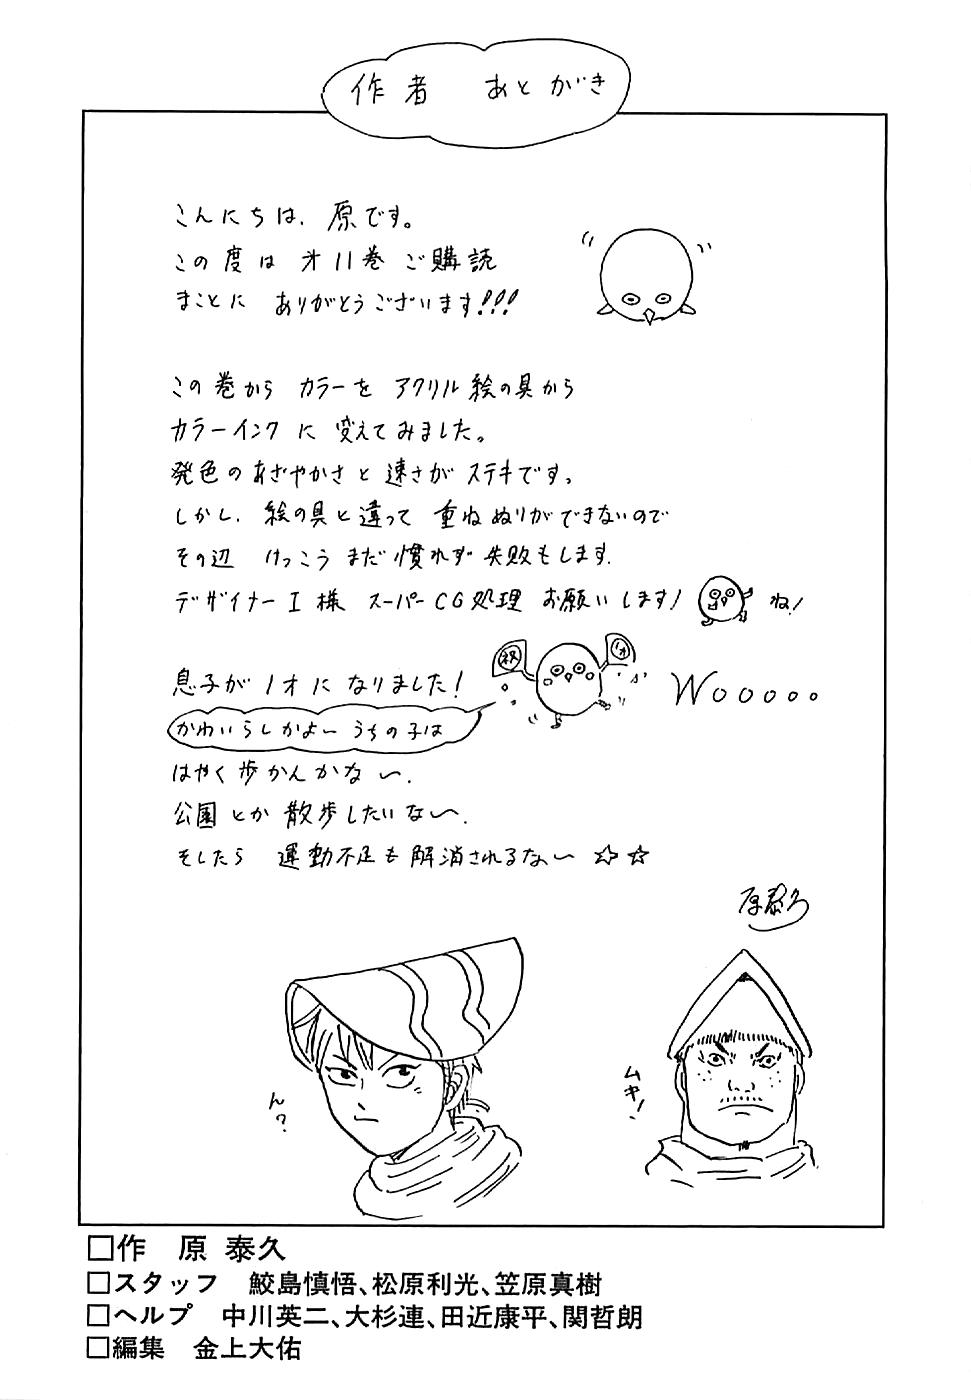 作者 あとがき
こんにちは、原です。
この度は 才11巻 ご購読
まことに ありがとうございます!!!
この巻から カラーを アクリル絵の具から
カラーインク に 変えてみました。
発色のあざやかさと速さが ステキです。
しかし、絵の具と違って 重ねぬりができないので
その辺 けっこう まだ慣れず 失敗もします.
デザイナーI様 スーパーCG処理 お願いします! ね!
祝 1才
息子が 1才に なりました! Wooooo
かわいらしかよ〜 うちの子は
はやく歩かんかな〜.
公園とか 散歩したいな〜.
そしたら 運動不足も解消されるな〜 ☆☆
原泰久
ん?
ムキ!
□作 原 泰久
□スタッフ 鮫島慎悟、松原利光、笠原真樹
□ヘルプ 中川英二、大杉連、田近康平、関哲朗
□編集 金上大佑